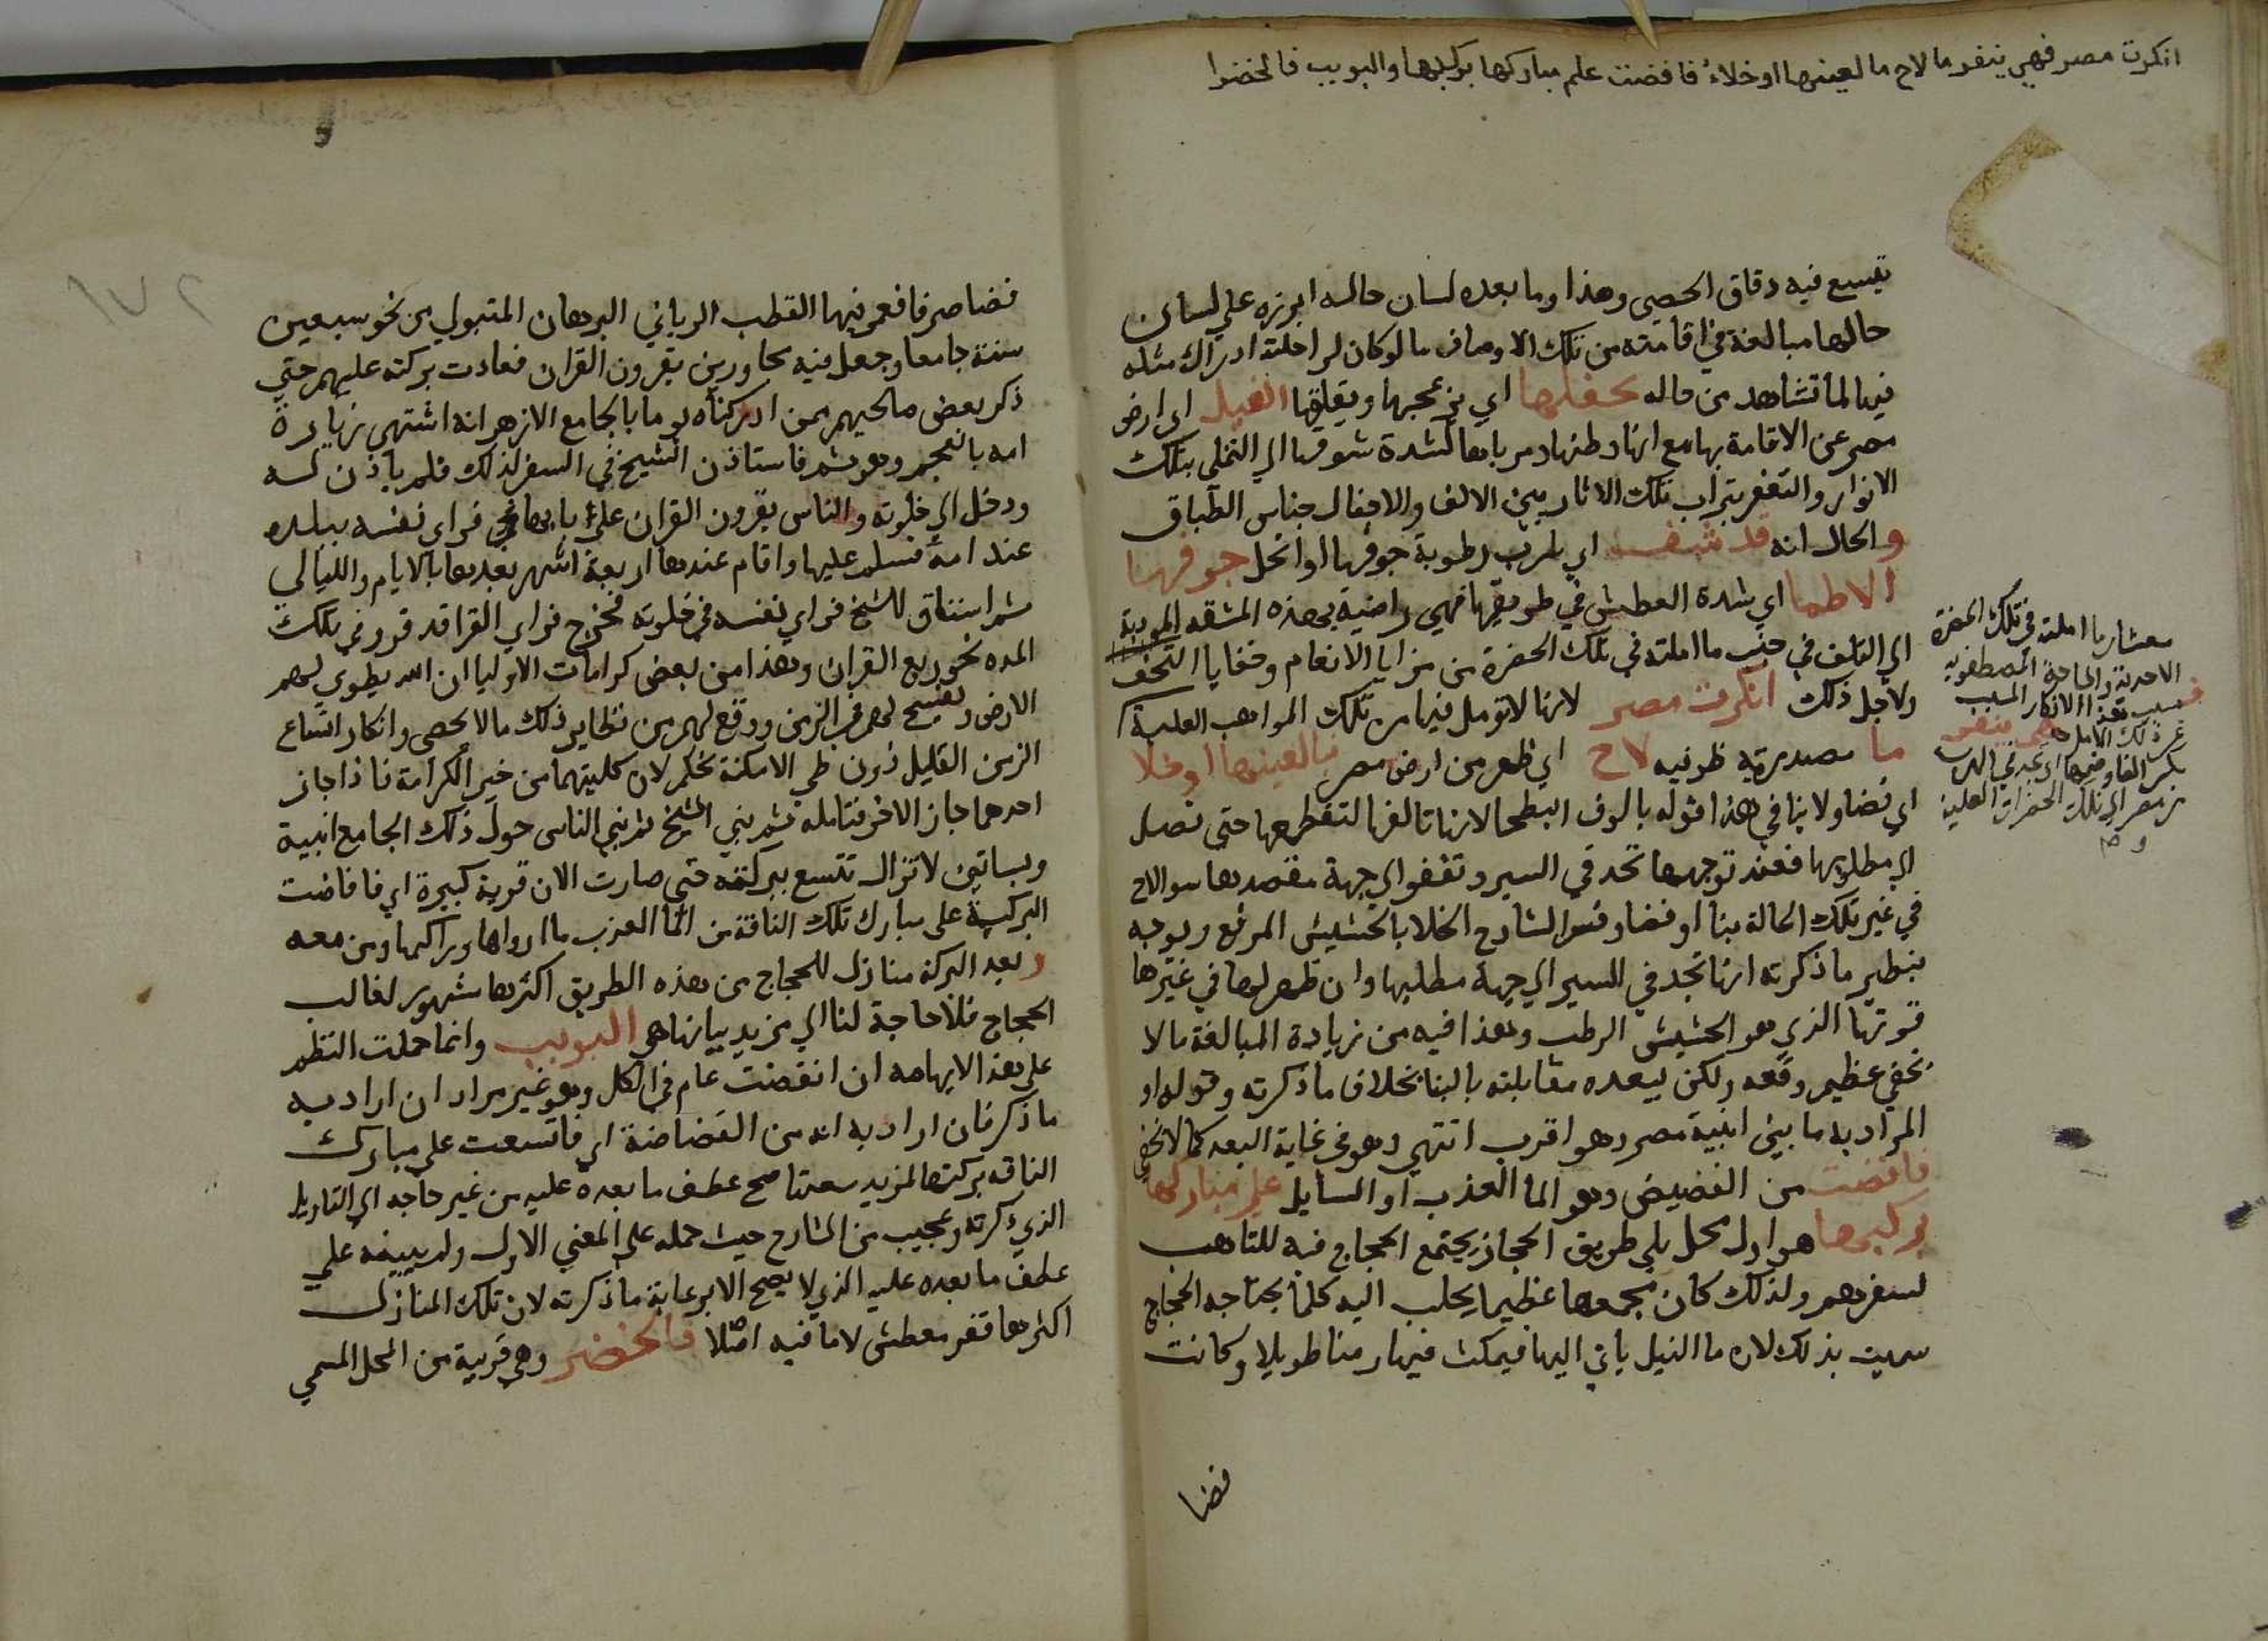 انكرت مصر فهي ينفر ما لاح ما لعينها او خلاء فافضت علم مباركها بركبها والبويب فالخضرا
تقيع فيه دقاق الحصي وهذا وما بعده لسان حاله ابرزه علي لسان
حالها مبالغة في اقامته من تلك الاوصاف ما لو كان لراحلته ادراك مثله
فيها لما تشاهد من حاله تحفلها اي يزعجها ويقلقها النيل اي ارض
مصر عن الاقامة بها مع انها وطنها ومرباها لشدة شوقها الي التملي بتلك
الانوار والتعفر بتراب تلك الاثار بين الالف والاجفال جناس الطباق
والحال انه قد شف اي رطوبة جوفها او انحل جوفها
الاظما اي شدة العطش في طريقها فهي راضية بهذه المشقه المودية
الي التلف في جنب ما املته في تلك الحضرة من مزايا الانعام وخفايا التحف
ولاجل ذلك انكرت مصر لانها لا تومل فيها من تلك المواهب العلية
ما مصدرية ظرفيه لاح اي ظهر من ارض مصر بنا لعينها او خلا
اي فضا ولا ينافي هذا قوله بالوف البطحا لانها تالفها لتقطعها حتي تصل
الي مطلوبها فعند توجهها تجد في السير وتقفو الي جهة مقصدها سوا لاح
في غير تلك الحالة بنا او فضا وفسر الشارح الخلا بالحشيش المرفع ويوجه
بنظير ما ذكرته انها تجد في السير الي جهة مطلبها وان ظهر لها في غيرها
قوتها الذي هو الحشيش الرطب وهذا فيه من زيادة المبالغة ما لا
يخفي عظيم وقعه ولكن يبعده مقابلته بالبنا بخلاف ما ذكرته وقوله او
المراد به ما بين ابنية مصر وهو اقرب انتهي وهو في غاية البعد كما لا يخفي
فافضت من الفضيض وهو الما العذب او السايل علي مباركها
بركبها هو اول محل يلي طريق الحجاز يجتمع الحجاج فيه للتاهب
لسفرهم ولذلك كان مجمعها عظيما يجلب اليه كلما يحتاجه الحجاج
سميت بذلك لان ما النيل ياتي اليها فيمكث فيها زمنا طويلا وكانت
فضا
معشار ما املته في تلك الحضرة
الاحمدية والساحة المصطفويه
فبسبب هذا الانكار المسبب
عن ذلك الامل فهي ينفر
بكسر الفا وضمها اي تجد في الهرب
من مصر الي تلك الحضرات العلية
فضا صرفا فعمر فيها القطب الرباني البرهان المتبولي من نحو سبعين
سنة جامعا وجعل فيه مجاورين يقرون القران فعادت بركته عليهم حتي
ذكر بعض صالحيهم ممن ادركناه يوما بالجامع الازهر انه اشتهي زيارة
امه بالعجم وهو بشر فاستاذن الشيخ في السفر لذلك فلم ياذن له
ودخل الي خلوته والناس يقرون القران علي بابها فراي نفسه ببلده
عند امه فسلم عليها واقام عندها اربعة اشهر بعدها بالايام والليالي
ثم اشتاق للشيخ فراي نفسه في خلوته فخرج فراي القرا قد قروا في تلك
المده نحو ربع القران وهذا من بعض كرامات الاوليا ان الله يطوي لهم
الارض ويفسح لهم في الزمن ووقع لهم من نظاير ذلك ما لا يحصي وانكار اتساع
الزمن القليل دون طي الامكنة تحكم لان كليتهما من خير الكرامة فاذا جاز
احدهما جاز الاخر فتامله ثم بني الشيخ ثم بني الناس حول ذلك الجامع ابنية
وبساتين لا تزال تتسع ببركته حتي صارت الان قرية كبيرة اي فافاضت
البركة علي مبارك تلك الناقة من الما العذب ما ارواها وراكبها ومن معه
وبعد البركة منازل للحجاج من هذه الطريق اكثرها مشهور لغالب
الحجاج فلا حاجة لنا الي مزيد بيانها هي البويب وانما حملت النظم
علي هذا لايهامه ان انفضت عام في الكل وهو غير مراد ان اراد به
ما ذكر فان اراد به انه من الفضاضة اي فاتسعت علي مبارك
الناقه بركتها لمزيد سعتها صح عطف ما بعده عليه من غير حاجه الي التاويل
الذي ذكرته وعجيب من الشارح حيث حمله علي المعني الاول ولم ينبه علي
عطف ما بعده عليه الذي لا يصح الا برعاية ما ذكرته لان تلك المنازل
اكثرها قفر معطش لا ما فيه اصلا فالخضر وهي قريبة من المحل المسمي